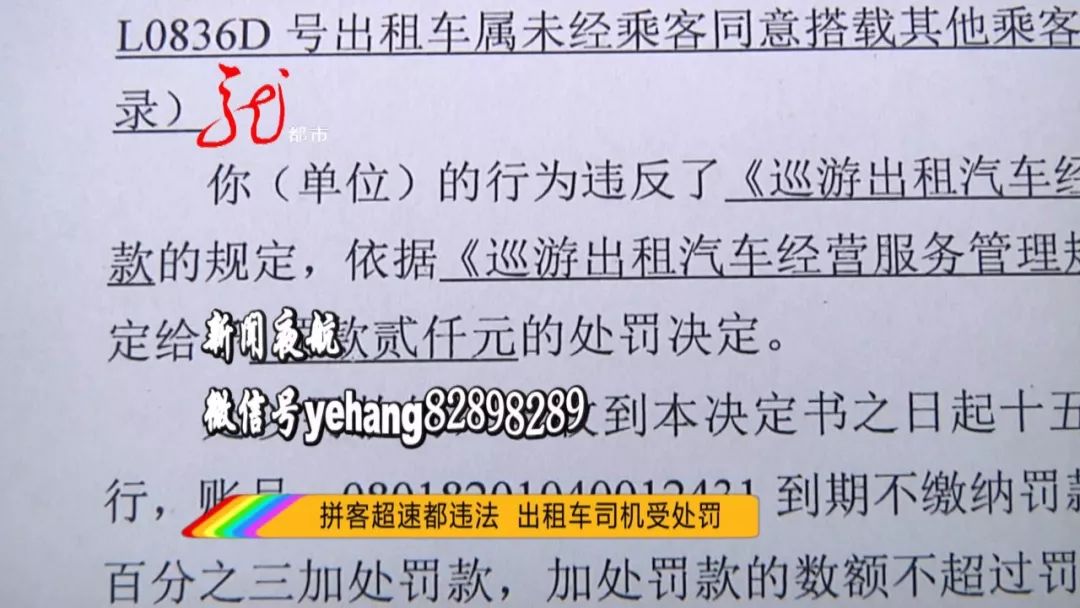 L0836D 号出租车属未经乘客同意搭载其他乘客
录）
龙
都市
你（单位）的行为违反了《巡游出租汽车经
款的规定，依据《巡游出租汽车经营服务管理规
定给
款贰仟元的处罚决定。
新闻夜航
微信号yehang82898289
收到本决定书之日起十五
行，账号
到期不缴纳罚款
拼客超速都违法 出租车司机受处罚
百分之三加处罚款，加处罚款的数额不超过罚